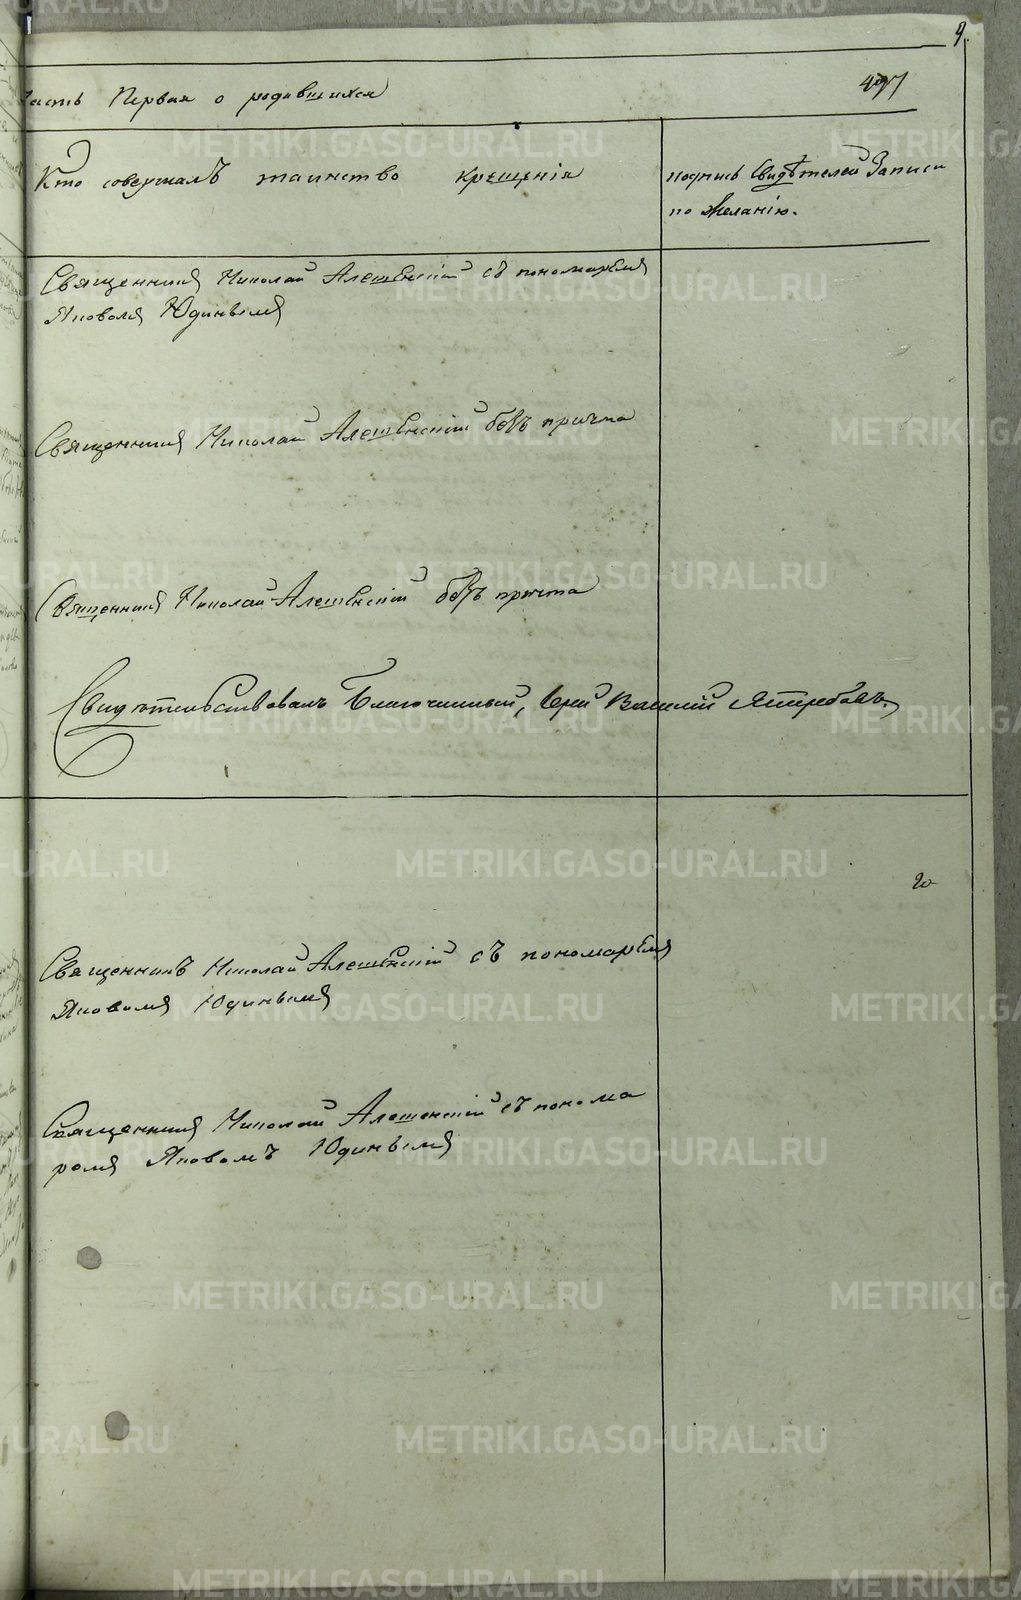 9.
Часть Первая о родившихся 497
Кто совершалъ таинство крещенія
подпись Свидѣтелей Записи
по Желанію.
Священникъ Николай Алешенскій съ пономаремъ
Яковомъ Юдинымъ
Священникъ Николай Алешенскій безъ причта
Священникъ Николай Алешенскій безъ причта
Свидѣтельствовалъ Благочинный, Іерей Василій Ястребовъ.
Священникъ Николай Алешенскій съ пономаремъ
Яковомъ Юдинымъ
Священникъ Николай Алешенскій съ понома
ремъ Яковомъ Юдинымъ
METRIKI.GASO-URAL.RU